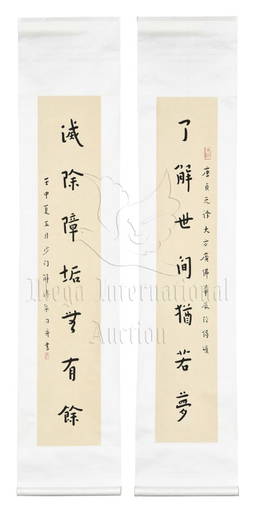 了解世间猶若夢
唐貞元译大方廣佛華嚴经偈頌
滅除障垢無有餘
Mega International
Auction